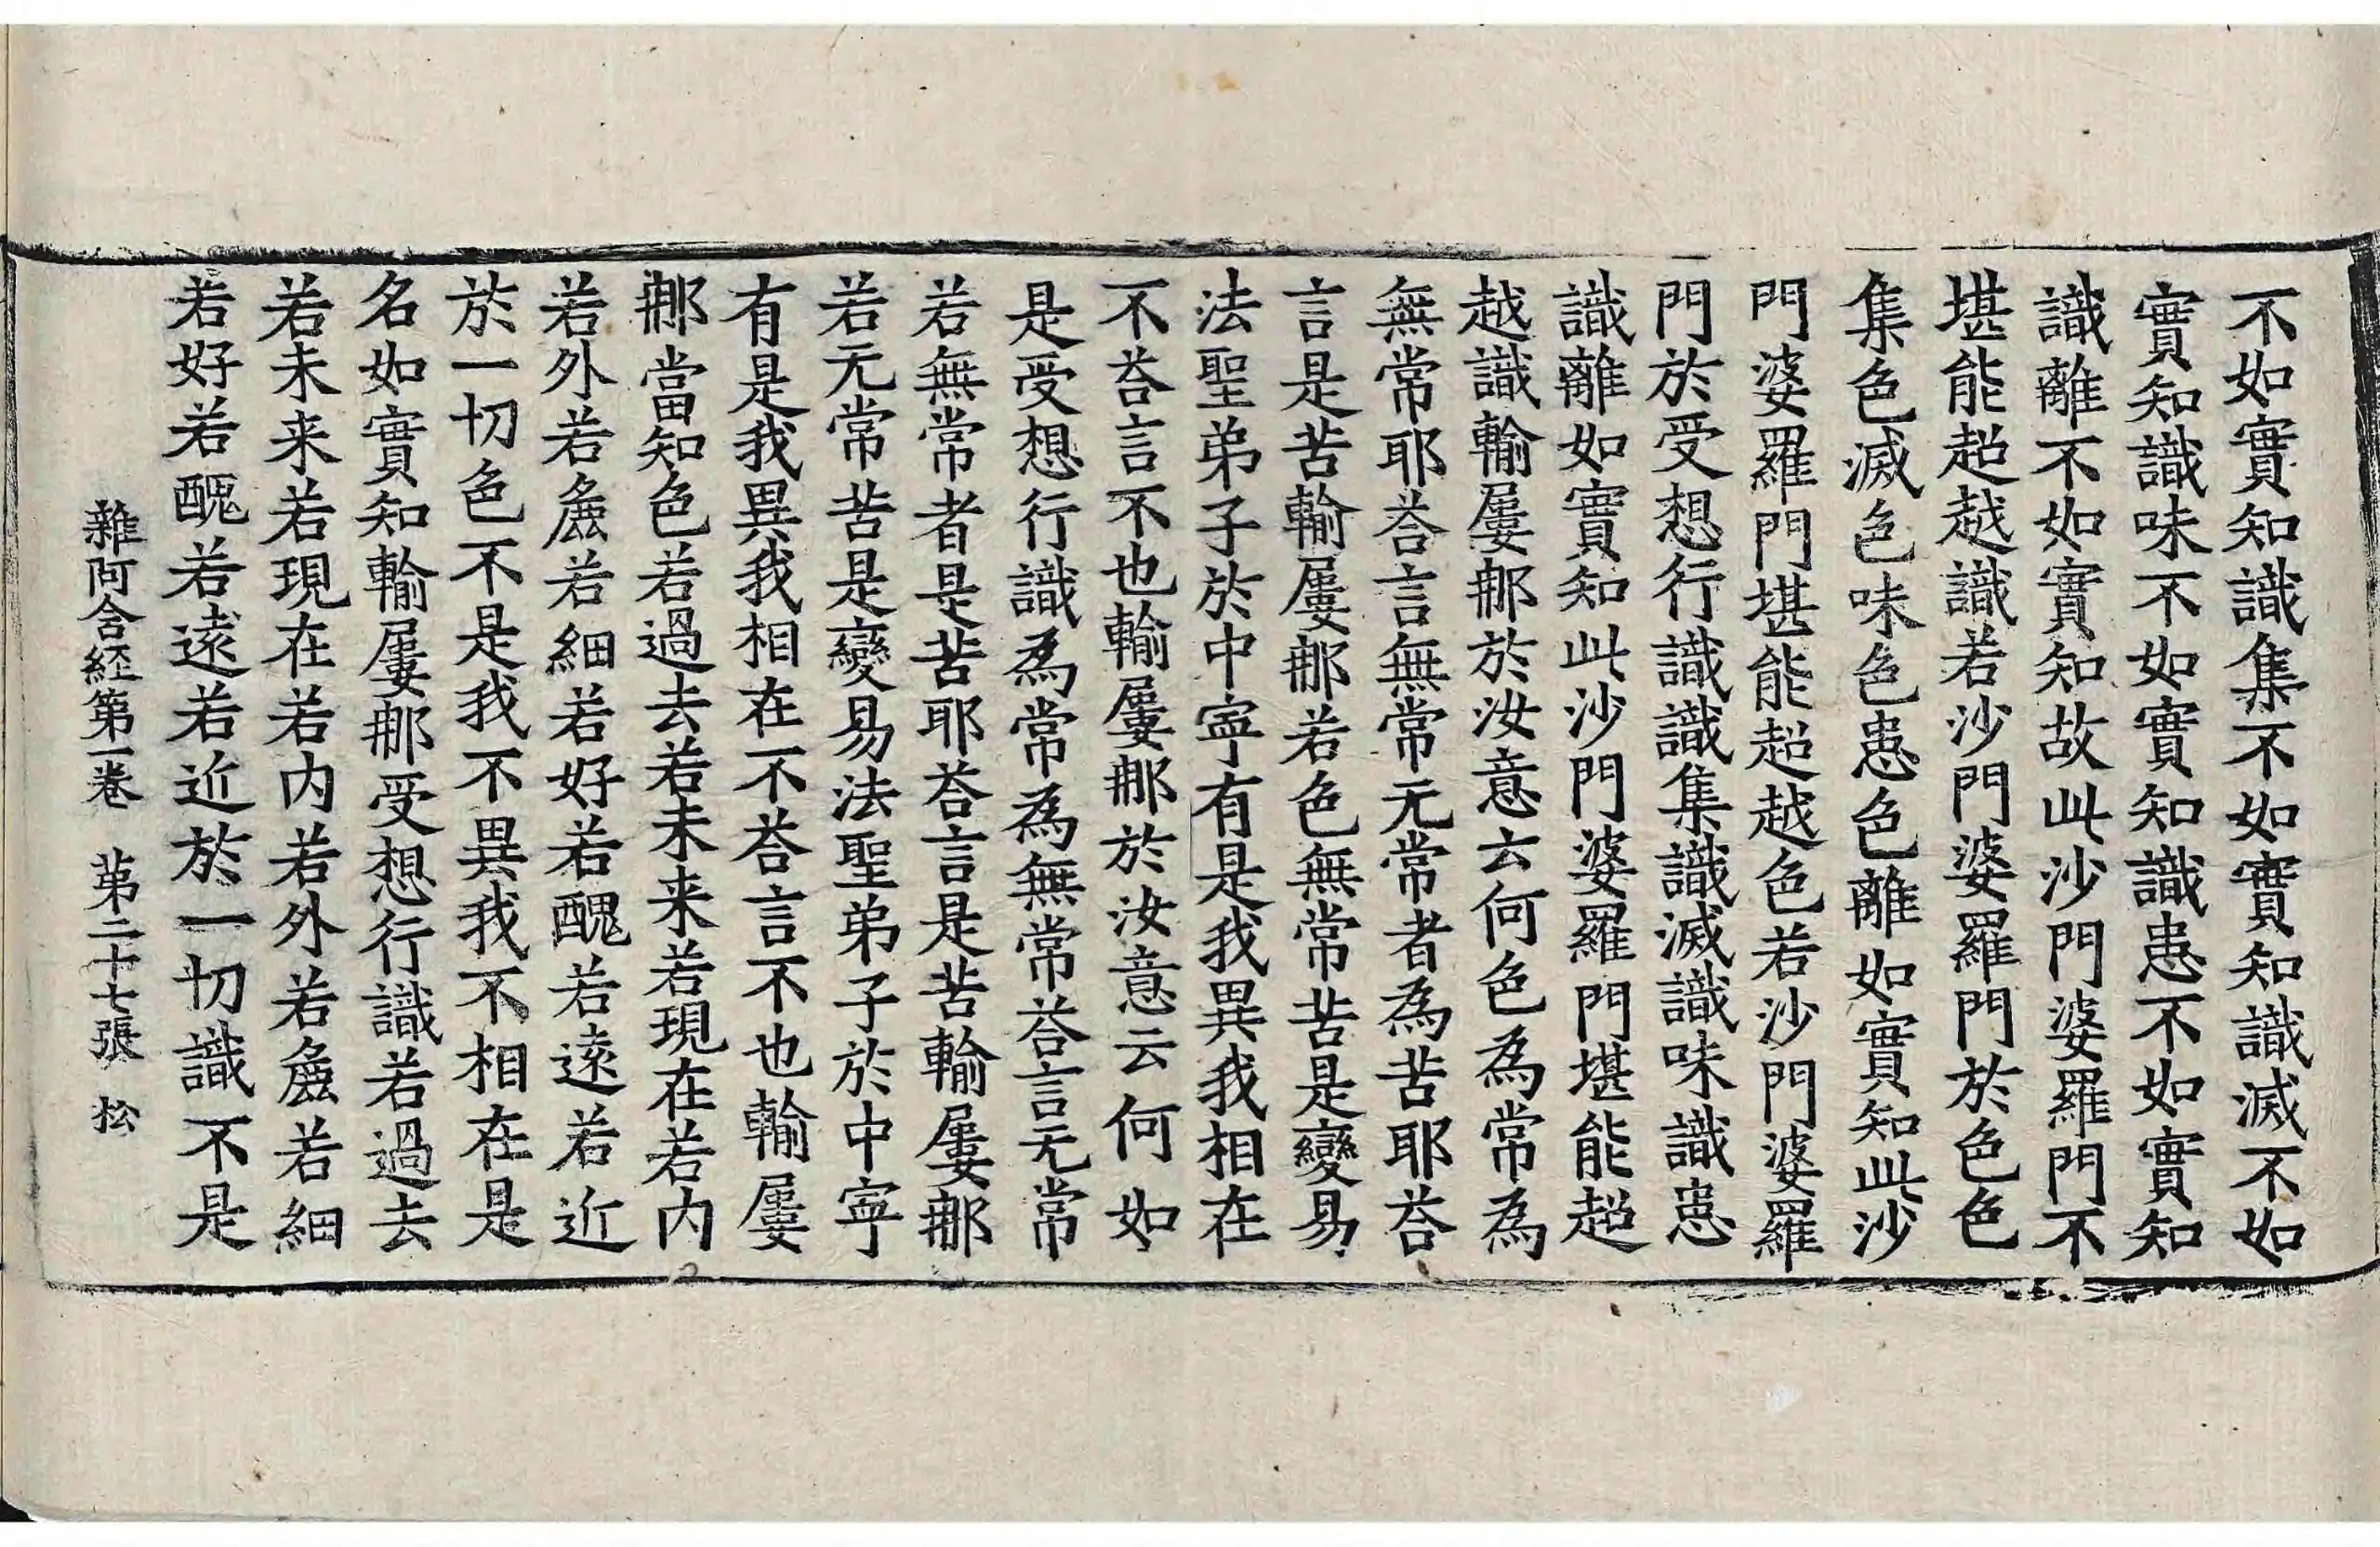 不如實知識集不如實知識滅不如
實知識味不如實知識患不如實知
識離不如實知故此沙門婆羅門不
堪能超越識若沙門婆羅門於色色
集色滅色味色患色離如實知此沙
門婆羅門堪能超越色若沙門婆羅
門於受想行識識集識滅識味識患
識離如實知此沙門婆羅門堪能超
越識輸屢那於汝意云何色為常為
無常耶荅言無常无常者為苦耶荅
言是苦輸屢那若色無常苦是變易
法聖弟子於中寧有是我異我相在
不荅言不也輸屢那於汝意云何如
是受想行識為常為無常荅言无常
若無常者是苦耶荅言是苦輸屢那
若无常苦是變易法聖弟子於中寧
有是我異我相在不荅言不也輸屢
那當知色若過去若未来若現在若內
若外若麁若細若好若醜若遠若近
於一切色不是我不異我不相在是
名如實知輸屢那受想行識若過去
若未来若現在若内若外若麁若細
若好若醜若遠若近於一切識不是
雜阿含經第一卷 第二十七張 松